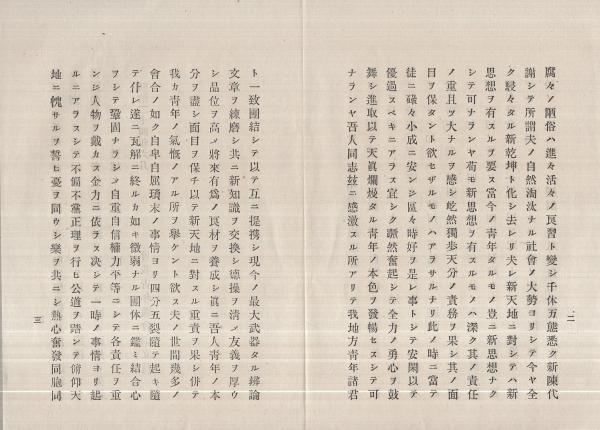 二
腐々ノ陋俗ハ進々活々ノ良習ト變シ千体万態悉ク新陳代
謝シテ所謂夫ノ自然淘汰ナル社會ノ大勢ヨリシテ今ヤ全
ク駸々タル新乾坤ト化シ去レリ夫レ新天地ニ對シテハ新
思想ヲ有スルヲ要ス當今ノ青年タルモノ豈ニ新思想ナク
シテ可ナランヤ苟モ新思想ヲ有スルモノハ深ク其ノ責任
ノ重且ツ大ナルヲ感シ屹然獨歩天分ノ責務ヲ果シ其ノ面
目ヲ保タント欲セザルモノハアラサルナリ此ノ時ニ當テ
徒ニ碌々小成ニ安ンシ區々時好ヲ是レ事トシテ安閑以テ
優過スベキニアラス宜シク蹶然奮起シテ全力ノ勇心ヲ鼓
舞シ進取以テ天眞爛熳タル青年ノ本色ヲ發暢セスシテ可
ナランヤ吾人同志玆ニ感激スル所アリテ我地方青年諸君
ト一致團結シテ以テ互ニ提携シ現今ノ最大武器タル辨論
文章ヲ練磨シ共ニ新知識ヲ交換シ德操ヲ清メ友義ヲ厚ウ
シ品位ヲ高メ將來有爲ノ良材ヲ養成シ眞ニ吾人青年ノ本
分ヲ盡シ面目ヲ保チ以テ新天地ニ對スル重責ヲ果シ併テ
我カ青年ノ氣慨ノアル所ヲ擧ケント欲ス夫ノ世間幾多ノ
會合ノ如ク自卑自屈瑣末ノ事情ヨリ四分五裂隨テ起キ隨
テ仆レ遂ニ瓦解ニ終ルカ如キ微弱ナル團体ニ鑑ミ結合心
ヲシテ鞏固ナラシメ自重自信權力平等ニシテ各責任ヲ重
ンシ人物ヲ戴カス金力ニ依ラス决シテ一時ノ事情ヨリ起
ルニアラスシテ不偏不黨正理ヲ行ヒ公道ヲ踏ンテ俯仰天
地ニ愧サルヲ誓ヒ憂ヲ同ウシ樂ヲ共ニシ熱心奮發同胞同
三